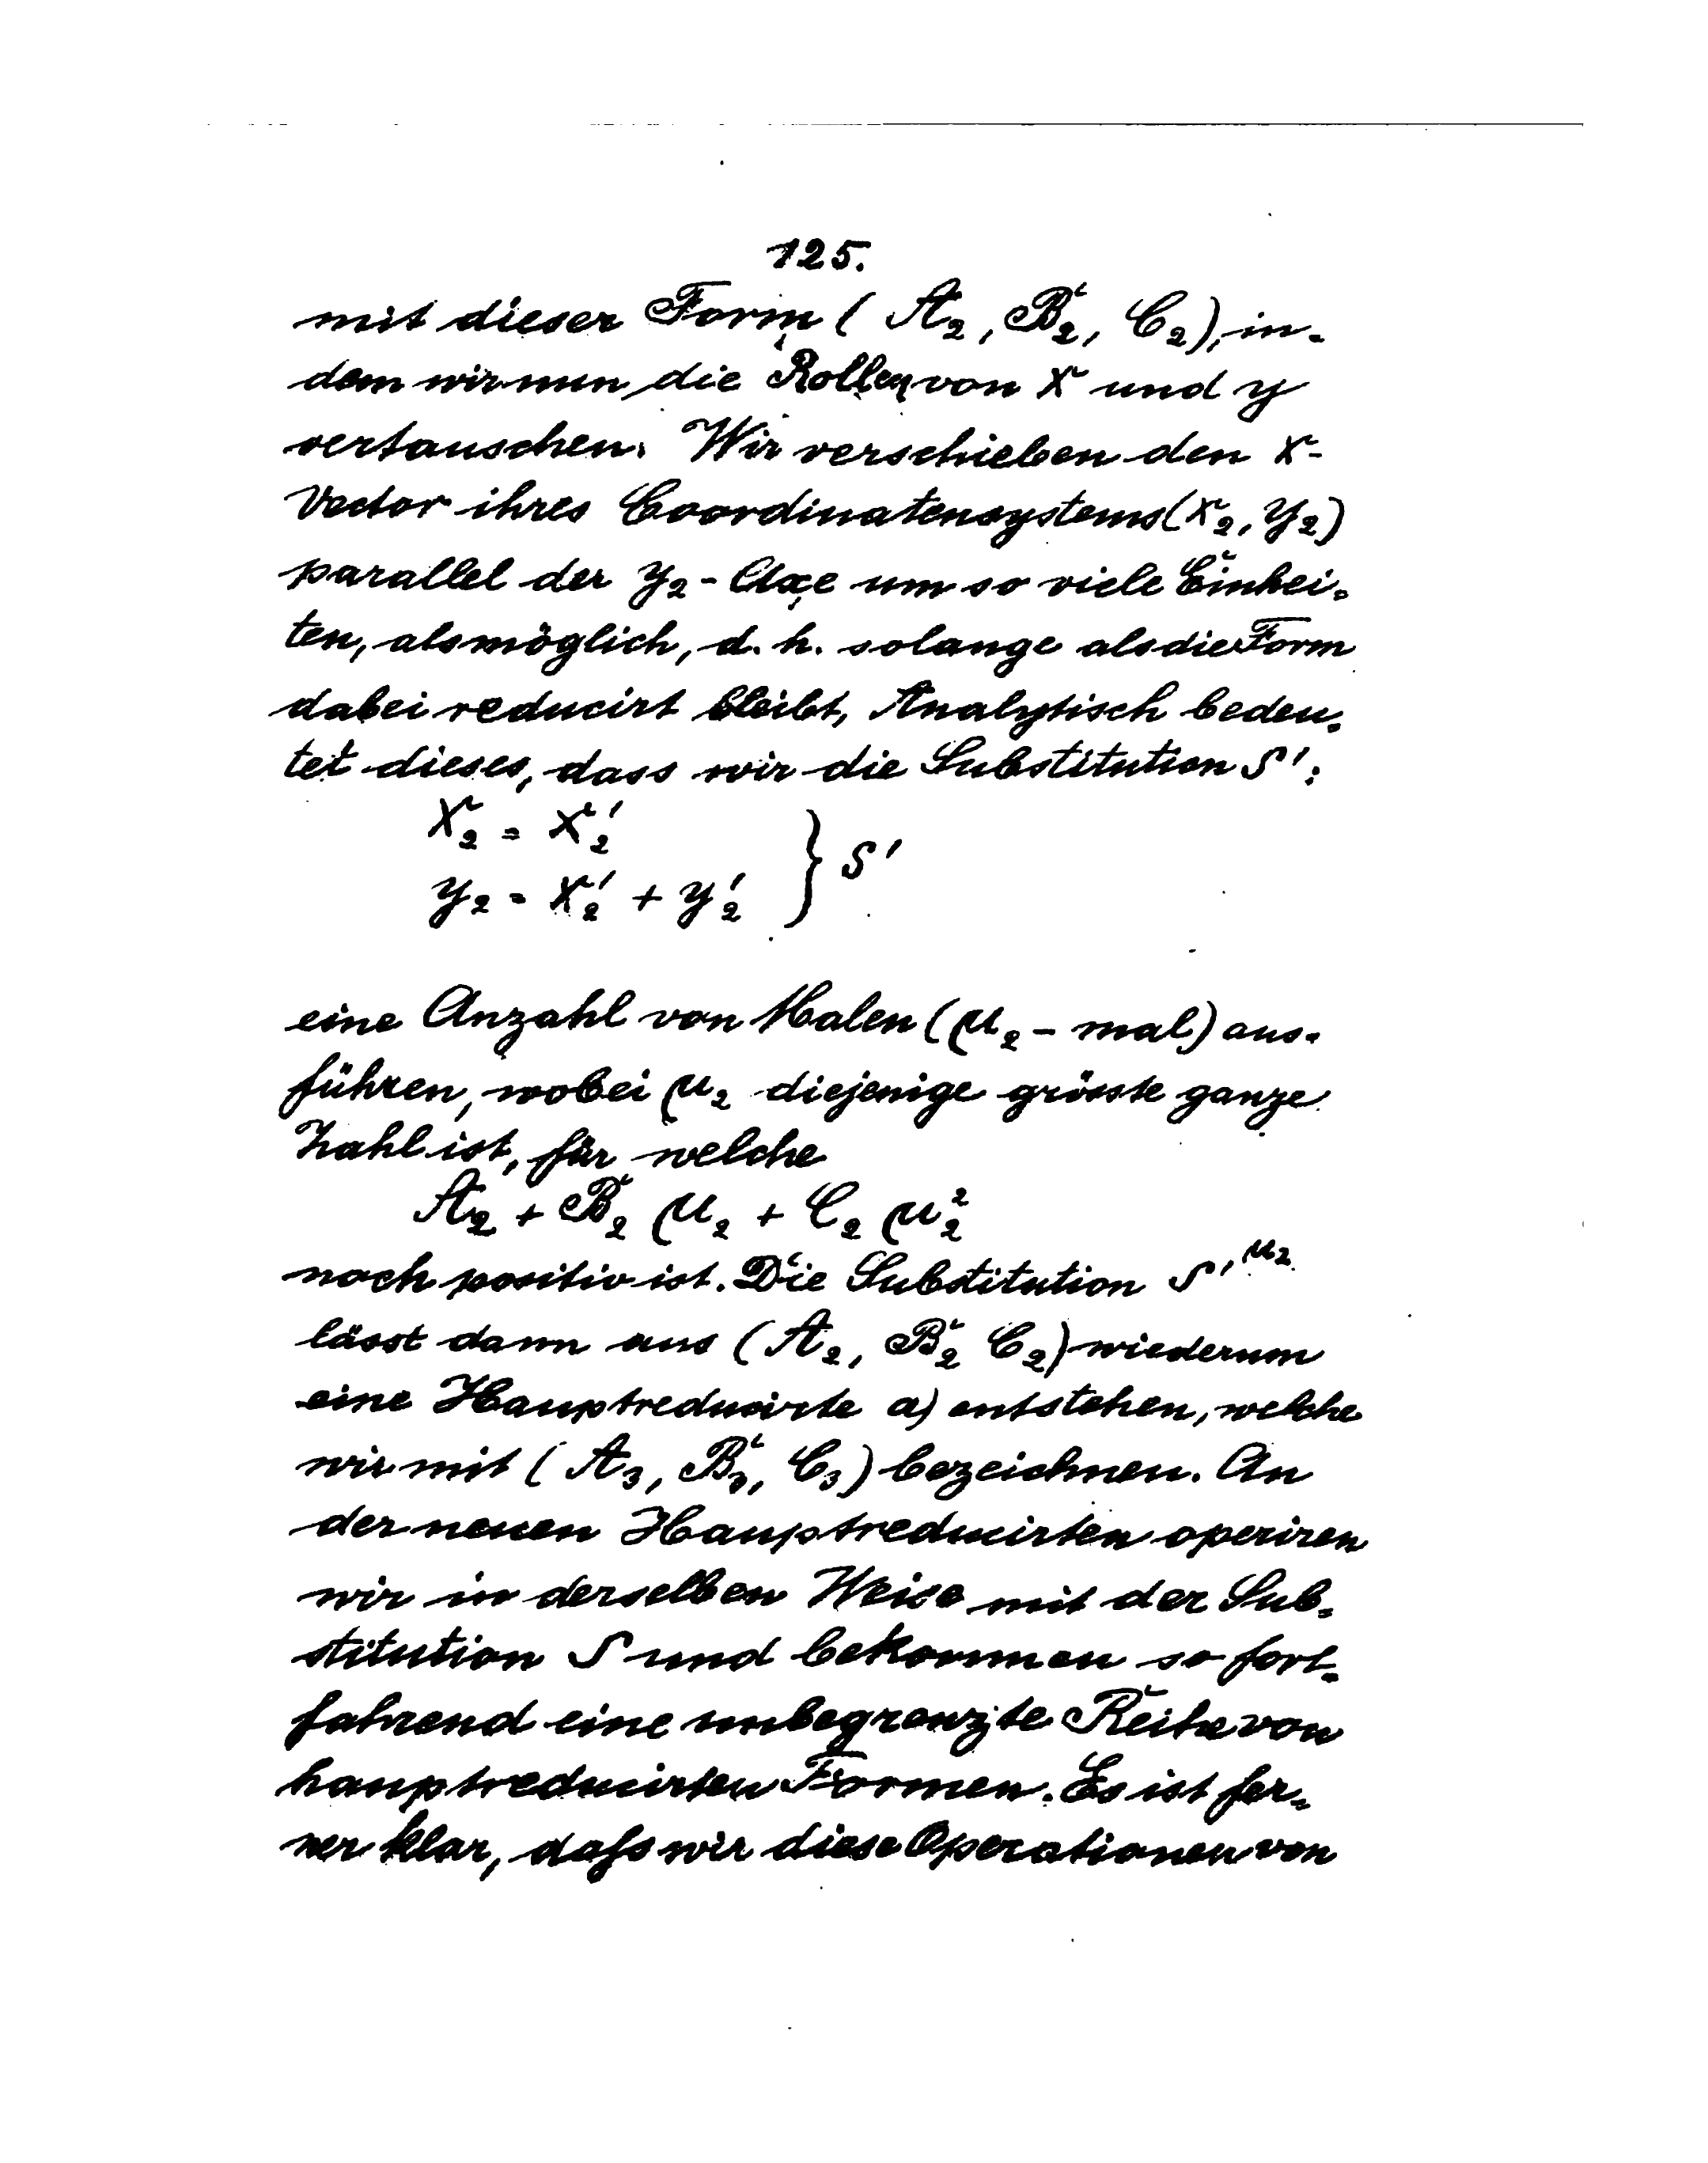 125.
mit dieser Form (A₂, B₂, C₂), in-
dem wir nun die Rollen von x und y
vertauschen. Wir verschieben den x-
Vector ihres Coordinatensystems (x₂, y₂)
parallel der y₂-Axe um so viele Einhei-
ten, als möglich, d. h. solange als die Form
dabei reducirt bleibt, Analytisch bedeu-
tet dieses, dass wir die Substitution S':
x₂ = x₂'
y₂ = x₂' + y₂' } S'
eine Anzahl von Malen (μ₂-mal) aus-
führen, wobei μ₂ diejenige grösste ganze
Zahl ist, für welche
A₂ + B₂ μ₂ + C₂ μ₂²
noch positiv ist. Die Substitution S'^μ₂
lässt dann aus (A₂, B₂ C₂) wiederum
eine Hauptreducirte a) entstehen, welche
wir mit (A₃, B₃, C₃) bezeichnen. An
der neuen Hauptreducirten operiren
wir in derselben Weise mit der Sub-
stitution S und bekommen so fort-
fahrend eine unbegrenzte Reihe von
hauptreducirten Formen. Es ist fer-
ner klar, daſs wir diese Operationen von